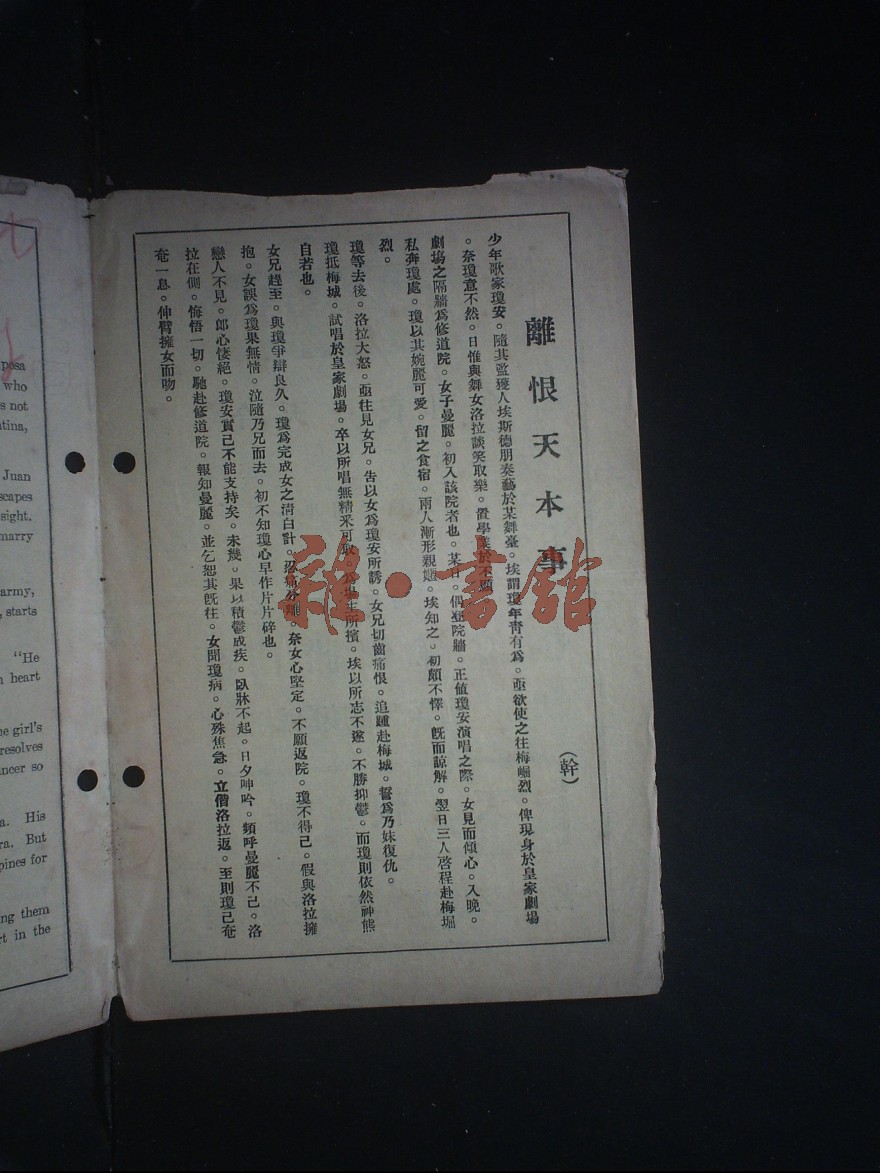 離恨天本事
(幹)
少年歌家瓊安。隨其監護人埃斯德朋奏藝於某舞臺。埃謂瓊年青有為。亟欲使之往梅崛烈。俾現身於皇家劇場
。奈瓊意不然。日惟與舞女洛拉談笑取樂。置學業於不顧
劇塲之隔牆為修道院。女子曼麗。初入該院者也。某日。偶登院牆。正値瓊安演唱之際。女見而傾心。入晚。
私奔瓊處。瓊以其婉麗可愛。留之食宿。兩人漸形親嫟。埃知之。初頗不懌。旣而諒解。翌日三人啓程赴梅堀
烈。
瓊等去後。洛拉大怒。亟往見女兄。告以女為瓊安所誘。女兄切齒痛恨。追踵赴梅城。誓為乃妹復仇。
瓊抵梅城。試唱於皇家劇場。卒以所唱無精釆可取。塲主所擯。埃以所志不遂。不勝抑鬱。而瓊則依然神態
自若也。
女兄趕至。與瓊爭辯良久。瓊為完成女之清白計。忍痛分離。奈女心堅定。不願返院。瓊不得已。假與洛拉擁
抱。女誤為瓊果無情。泣隨乃兄而去。初不知瓊心早作片片碎也。
戀人不見。郎心悽絕。瓊安實已不能支持矣。未幾。果以積鬱成疾。臥牀不起。日夕呻吟。頻呼曼麗不已。洛
拉在側。悔悟一切。馳赴修道院。報知曼麗。並乞恕其旣往。女聞瓊病。心殊焦急。立偕洛拉返。至則瓊已奄
奄一息。伸臂擁女而吻。
雜·書舘
posa
who
s not
tina,
Juan
scapes
sight.
marry
army,
, starts
"He
n heart
he girl's
resolves
ncer so
a. His
ra. But
pines for
ng them
rt in the